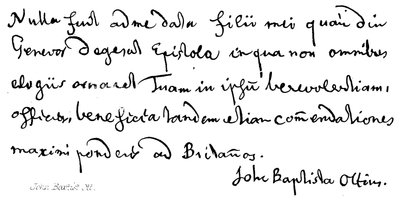 Nulla fuit ad me data filii mei quãdiu
Genevæ degeret Epistola in qua non omnibus
elogiis ornaret Tuam in ipsũ benevolentiam,
officia, beneficia tandem etiam cõmendationes
maximi ponderis ad Britãños.
Joh: Baptista Ottius.
John Baptist Ott.